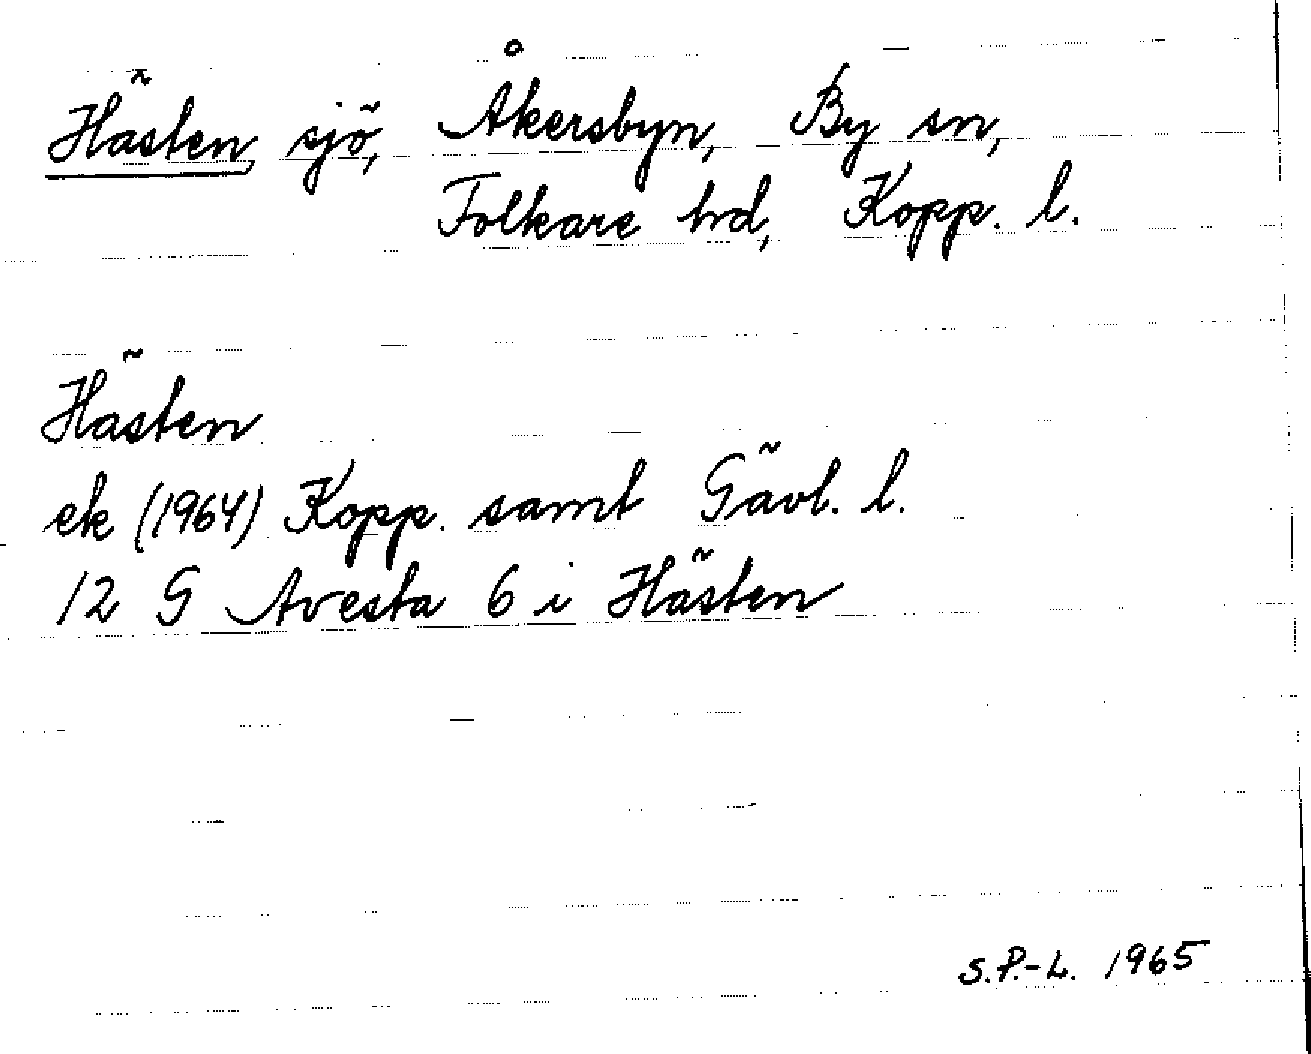 Hästen, sjö, Åkersbyn, By sn,
Folkare hd, Kopp. l.
Hästen
ek (1964) Kopp. samt Gävl. l.
12 G Avesta 6 i Hästen
S.P.-L. 1965